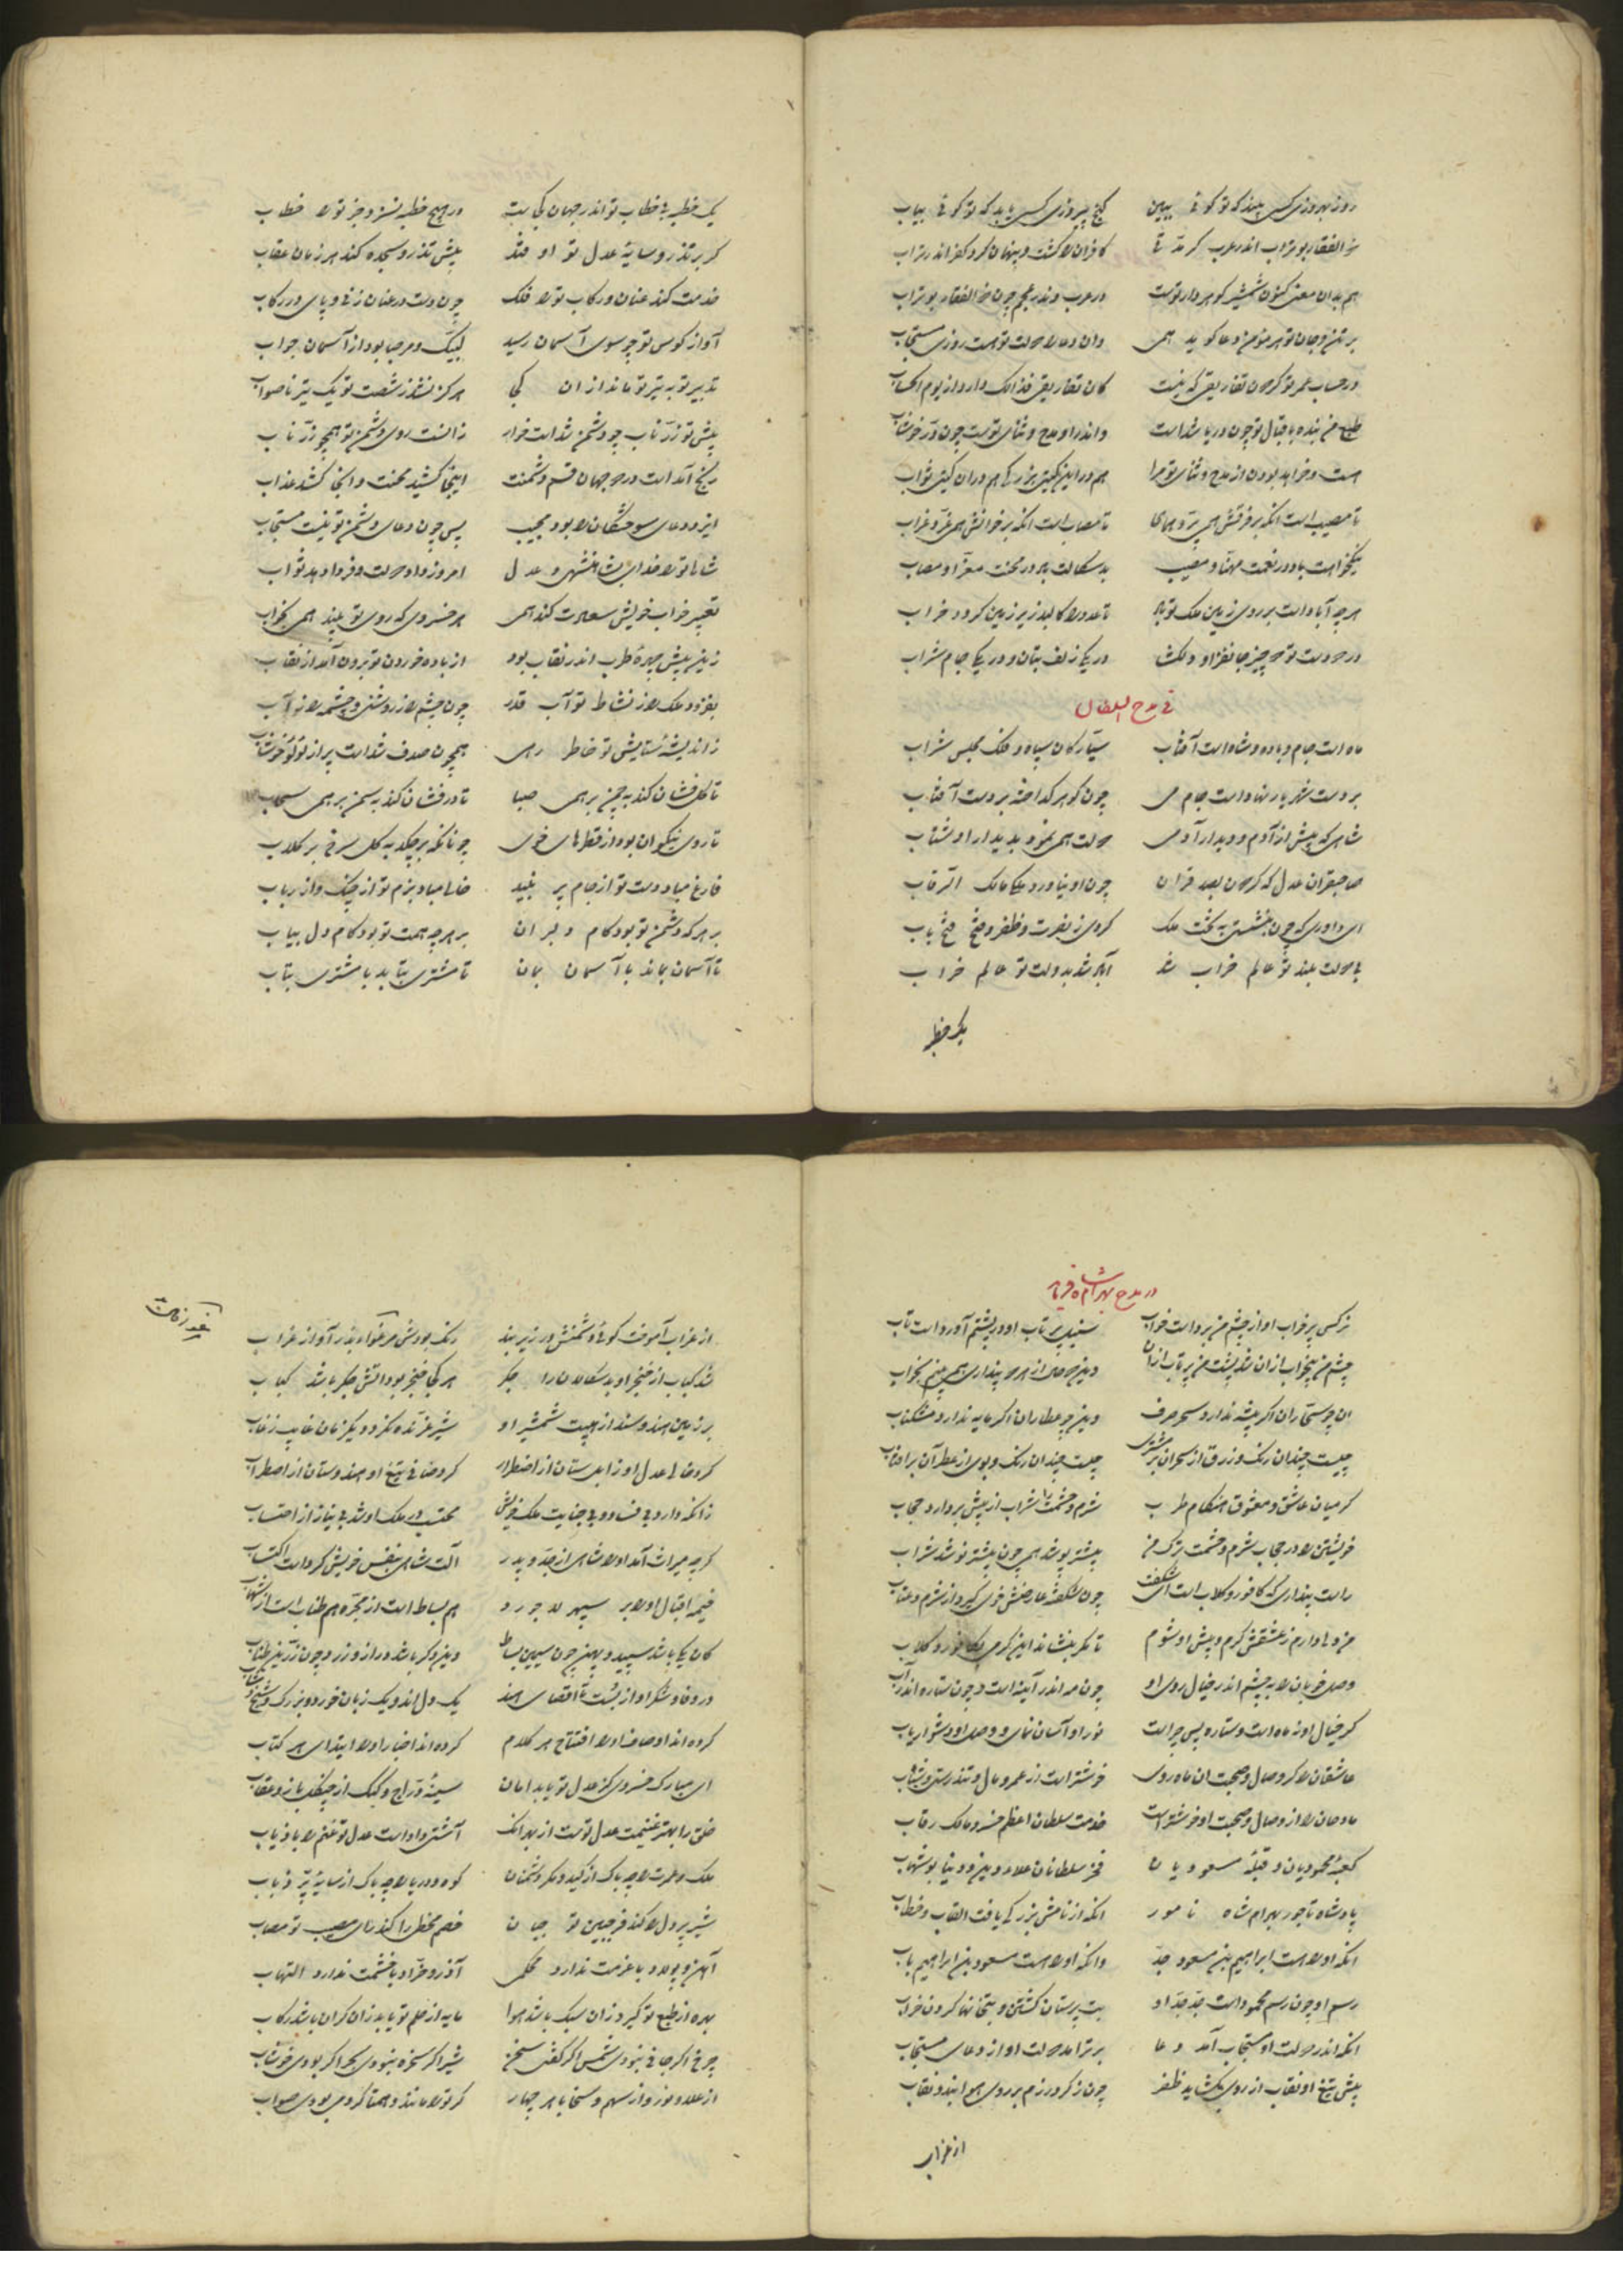 روز بهروزی کسی بیند که تو گوئی ببین گنج پیروزی کسی یابد که تو گوئی بیاب
ذو الفقار بوتراب اندر عرب گر مدتی کافران را کشت و پنهان کرد کفر اندر تراب
هم بدان معنی کنون شمشیر گوهردار تست در عرب وندر عجم چون ذو الفقار بوتراب
بر تن و جان تو هر مؤمن دعا گوید همی وان دعا را دولت تو هست روزی مستجاب
در حساب عمر تو گردون تفاریقی که نیست کان تفاریقی فذلک دارد از یوم الحساب
طبع من بنده باقبال تو چون دریا شداست واندر او مدح و ثنای تست چون در خوشاب
هست و خواهد بودن از مدح و ثنای تو مرا هم در این گیتی بزرگی هم در ان گیتی ثواب
تا مصیب است انکه بر فرقش همی پرد همای تا مصاب است انکه بر خوانش همی غرد غراب
نیکخواهت باد در نعمت مهنا و مصیب بدسگالت باد در محنت معزا و مصاب
هرچه آباد است بر روی زمین ملک تو باد تا عدو را کالبد زیر زمین گردد خراب
در دو دست تو دو چیز جانفزا و دلگشا در یکی زلف بتان و در یکی جام شراب
فی مدح السلطان
ماه است جام و باده و شاه است آفتاب سیارگان سپاه و فلک مجلس شراب
بر دست شهریار نهاد است جام می چون گوهر گداخته بر دست آفتاب
شاهی که پیش از آدم و دیدار آدمی دولت همی نمود بدیدار او شتاب
صاحبقران عدل که گردون بصد قران چون او نیاورد ملکی مالک الرقاب
ای داوری که چون بنشستی به تخت ملک کردی ز نصرت و ظفر و فتح فتح باب
بی دولت بلند تو عالم خراب شد آباد شد بدولت تو عالم خراب
یک خطبه
یک خطبه بی خطاب تو اندر جهان کجاست در هیچ خطبه نسزد جز تو را خطاب
گر بر تذرو سایه عدل تو اوفتد پیش تذرو سجده کند هر زمان عقاب
خدمت کند عنان و رکاب تو را فلک چون دست در عنان زنی و پای در رکاب
آواز کوس تو چو سوی آسمان رسید لبیک و مرحبا بود از آسمان جواب
تدبیر تو به تیر تو ماند از ان کجا هرگز نشد ز شصت تو یک تیر ناصواب
پیش تو زر ناب چو دشمن شد است خوار زانست روی دشمن تو همچو زر ناب
رنج آمد است در دو جهان قسم دشمنت اینجا کشید محنت و آنجا کشد عذاب
ایزد دعای سوختگان را بود مجیب پس چون دعای دشمن تو نیست مستجاب
شاها تو را خدای شاهنشهی و عدل امروز داد دولت و فردا دهد ثواب
تعبیر خواب خویش سعادت کند همی هر خسروی که روی تو بیند همی بخواب
زین پیش چهره طرب اندر نقاب بود از باده خوردن تو برون آمد از نقاب
بفزود ملک را ز نشاط تو آب قدر چون چشم را ز روشنی و چشمه را ز آب
ز اندیشه ستایش تو خاطر رهی همچون صدف شد است پر از لؤلؤ خوشاب
تا گل فشان کند به چمن بر همی صبا تا در فشان کند به سمن بر همی سحاب
تا روی نیکوان بود از قطرهای خوی چونانکه برچکد به گل سرخ بر گلاب
فارغ مباد دست تو از جام پر نبید خالی مباد بزم تو از چنگ و از رباب
بر هر که دشمن تو بود کام دل بران بر هرچه همت تو بود کام دل بیاب
تا آسمان بماند با آسمان بمان تا مشتری بتابد با مشتری بتاب
در مدح بهرامشاه فرماید
نرگس پرخواب او از چشم من برد است خواب سنبل پرتاب او در پشتم آورد است تاب
چشم من بیخواب از ان شد پشت من پرتاب از ان وین دو حال از هر دو پنداری همی بینم بخواب
ان چو سحاران اگر پیشه ندارد سحر صرف وین چو عطاران اگر مایه ندارد مشکناب
چیست چندان رنگ و زرق از سحر ان بر مشتری چیست چندان رنگ و بوی از عطر آن بر افتاب
گر میان عاشق و معشوق هنگام طرب شرم و حشمت را شراب از پیش بردارد حجاب
خویشتن را در حجاب شرم و حشمت ترک من بیشتر پوشد همی چون بیشتر نوشد شراب
راست پنداری که کافور و گلاب است ای شگفت چون شکفته عارضش خوی گیرد از شرم و عتاب
من دلی دارم ز عشقش گرم و پیش او شوم تا مگر بنشاند این گرمی بکافور و گلاب
وصل خوبان را به چشم اندر خیال روی او چون مه اندر آینه است و چون ستاره اندر آب
گر خیال او ز ماه است و ستاره پس چراست نور او آسان نمای و وصل او دشوار یاب
عاشقان را گر وصال و صحبت ان ماه روی خوشتر است از عمر و مال و تندرستی و شباب
مادحان را از وصال و صحبت او خوشتر است خدمت سلطان اعظم خسرو مالک رقاب
کعبه محمودیان و قبله مسعودیان فخر سلطانان علاء دین و دنیا بوشهاب
پادشاه تاجور بهرام شاه نامور انکه از نامش بزرگی یافت القاب و خطاب
انکه او را هست ابراهیم بن مسعود جد وانکه او را هست مسعود بن ابراهیم باب
رسم او چون رسم محمود است جد جد او بت پرستان کشتن و بتخانها کردن خراب
انکه اندر دولت او مستجاب آمد دعا برتر امد دولت او از دعای مستجاب
پیش تیغ او نقاب از روی بگشاید ظفر چون ز گرد رزم بر روی هوا بندد نقاب
از غراب
از غراب آموخت گوئی دشمنش در زیر بند رنگ بودش مرغوا و نیز آواز غراب
شد کباب از خنجر او بدسگالان را جگر هر کجا خنجر بود آتش جگر باشد کباب
بر زمین هند و سند از هیبت شمشیر او شیر غرنده نگردد یکزمان غایب ز غاب
کرد خالی عدل او زابلستان از اضطرار کرد صافی تیغ او هندوستان از اضطراب
زانکه دارد بی فساد و بی جنایت ملک خویش محتسب در ملک او شد بی نیاز از احتساب
گرچه میراث آمد او را شاهی از جد و پدر آلت شاهی بنفس خویش کرد است اکتساب
خیمه اقبال او را بر سپهر لاجورد هم بساط است از مجره هم طناب است از شهاب
کان یکی باشد سپید و پهن چون سیمین بساط وین دگر باشد دراز و زرد چون زرین طناب
در وفا و شکر او از بست تا اقصای هند یک دل اند و یک زبان خرد و بزرگ و شیخ و شاب
کرده اند اوصاف او را افتتاح هر کلام کرده اند اخبار او را ابتدای هر کتاب
ای مبارک خسروی کز عدل تو یابد امان سینه دراج و کبک از چنگل باز و عقاب
خلق را بهتر غنیمت عدل تست از بهر انک آشتی داد است عدل تو غنم را با ذیاب
ملک و عمرت را چه باک از کید و مکر دشمنان کوه و دریا را چه باک از سایه پر ذباب
شیر پردل را کند خر جبین تو جبان خصم مخطی را کند رای مصیب تو مصاب
آهن و پولاد با عزمت ندارد محکمی آذر و خراد با خشمت ندارد التهاب
بهره از طبع تو گیرد زان سبک باشد هوا مایه از حلم تو یابد زان گران باشد رکاب
چرخ اگر جافی نبودی شمس اگر گفتی سخن شیر اگر سخره نبودی بحر اگر بودی خوشاب
از علا و نور و از سهم و سخا با هر چهار گر تو را مانند و همتا کردمی بودی صواب